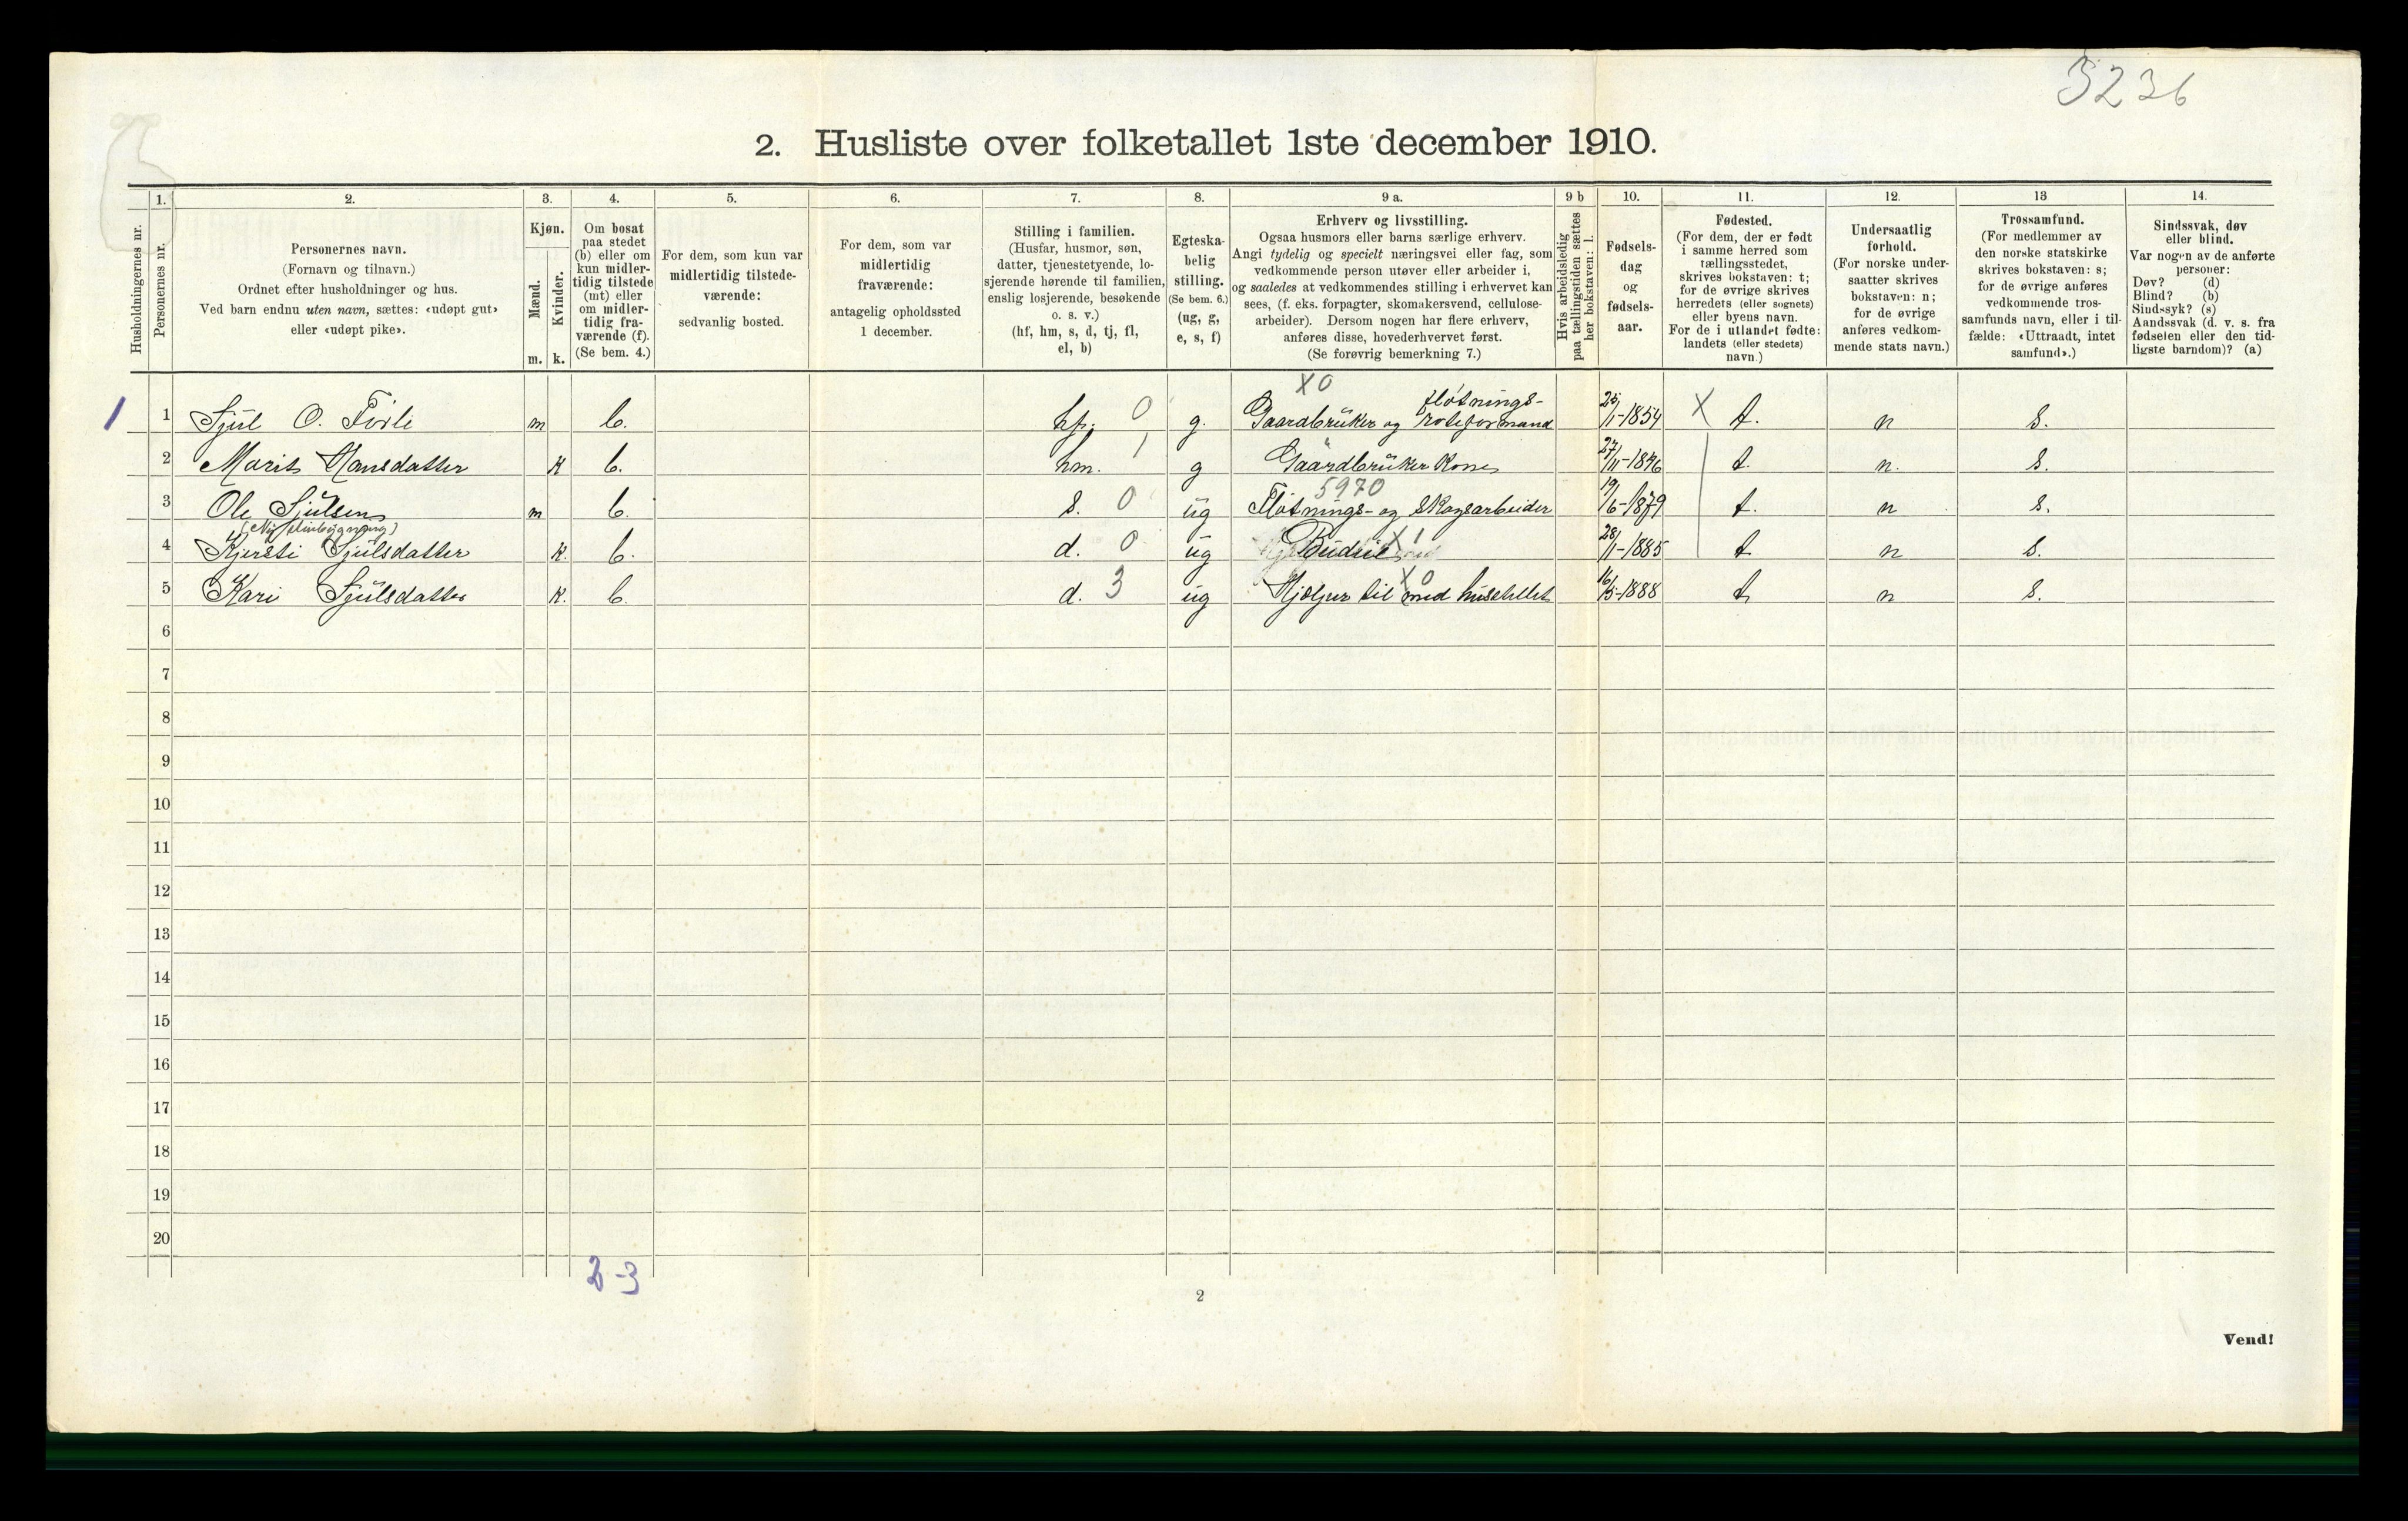 5236
2. Husliste over folketallet 1ste december 1910.
1. 2. 3. 4. 5. 6. 7. 8. 9 a. 9 b 10. 11. 12. 13 14.
Husholdningernes nr.
Personernes nr.
Personernes navn.
(Fornavn og tilnavn.)
Ordnet efter husholdninger og hus.
Ved barn endnu uten navn, sættes: «udøpt gut»
eller «udøpt pike».
Kjøn.
Mænd.
Kvinder.
m. k.
Om bosat
paa stedet
(b) eller om
kun midler-
tidig tilstede
(mt) eller
om midler-
tidig fra-
værende (f).
(Se bem. 4.)
For dem, som kun var
midlertidig tilstede-
værende:
sedvanlig bosted.
For dem, som var
midlertidig
fraværende:
antagelig opholdssted
1 december.
Stilling i familien.
(Husfar, husmor, søn,
datter, tjenestetyende, lo-
sjerende hørende til familien,
enslig losjerende, besøkende
o. s. v.)
(hf, hm, s, d, tj, fl,
el, b)
Egteska-
belig
stilling.
(Se bem. 6.)
(ug, g,
e, s, f)
Erhverv og livsstilling.
Ogsaa husmors eller barns særlige erhverv.
Angi tydelig og specielt næringsvei eller fag, som
vedkommende person utøver eller arbeider i,
og saaledes at vedkommendes stilling i erhvervet kan
sees, (f. eks. forpagter, skomakersvend, cellulose-
arbeider). Dersom nogen har flere erhverv,
anføres disse, hovederhvervet først.
(Se forøvrig bemerkning 7.)
Hvis arbeidsledig
paa tællingstiden sættes
her bokstaven: l.
Fødsels-
dag
og
fødsels-
aar.
Fødested.
(For dem, der er født
i samme herred som
tællingsstedet,
skrives bokstaven: t;
for de øvrige skrives
herredets (eller sognets)
eller byens navn.
For de i utlandet fødte:
landets (eller stedets)
navn.)
Undersaatlig
forhold.
(For norske under-
saatter skrives
bokstaven: n;
for de øvrige
anføres vedkom-
mende stats navn.)
Trossamfund.
(For medlemmer av
den norske statskirke
skrives bokstaven: s;
for de øvrige anføres
vedkommende tros-
samfunds navn, eller i til-
fælde: «Uttraadt, intet
samfund».)
Sindssvak, døv
eller blind.
Var nogen av de anførte
personer:
Døv? (d)
Blind? (b)
Sindssyk? (s)
Aandssvak (d. v. s. fra
fødselen eller den tid-
ligste barndom)? (a)
X0
fløtnings-
1 1 Sjul O. Förli m b. hf. 0 g. Gaardbrüker og roteformand 25/1-1854 X t. n s.
2 Marit Hansdatter k b. hm. 1 g Gaardbrüker kone 27/11-1846 t. n. s.
5970
3 Ole Sjulsen m b. s. 0 ug Fløtnings- og skogsarbeider 19/6-1879 t. n s.
4 Kjersti Sjulsdatter k. b. d. 0 ug Budeie X1 28/1-1885 t n s.
X0
5 Kari Sjulsdatter k. b. d. 3 ug Hjælper til med husstellet 16/5-1888 t n s.
6
7
8
9
10
11
12
13
14
15
16
17
18
19
20
2-3
2
Vend!